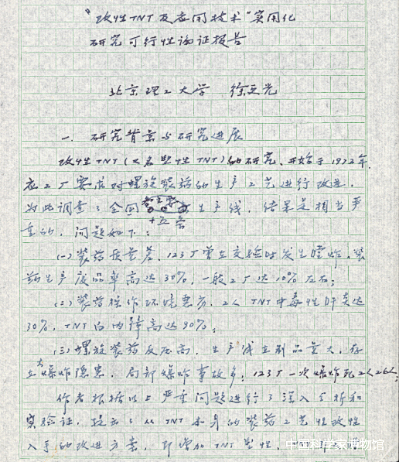 "改性TNT及应用技术"实用化
研究可行性论证报告
北京理工大学 徐更光
一、研究背景与研究进展
改性TNT(又名塑性TNT)的研究,开始于1972年,
应工厂要求对螺旋装药的生产工艺进行改进,
为此调查了全国 生产线,结果是相当严
重的,问题如下:
(一)装药质量差,123厂曾在交验时发生膛炸,装
药生产废品率高达30%,一般工厂达10%左右;
(二)装药操作环境恶劣,工人TNT中毒性肝炎达
30%,TNT白内障高达90%;
(三)螺旋装药反应高,生产线在制品量大,存
在爆炸隐患,局部爆炸事故多,123厂一次爆炸死工人26人。
作者根据以上严重问题进行了深入分析和
实验证,提出了从TNT本身的装药工艺性改性
入手的改进方案,即增加TNT塑性,
中国科学家博物馆